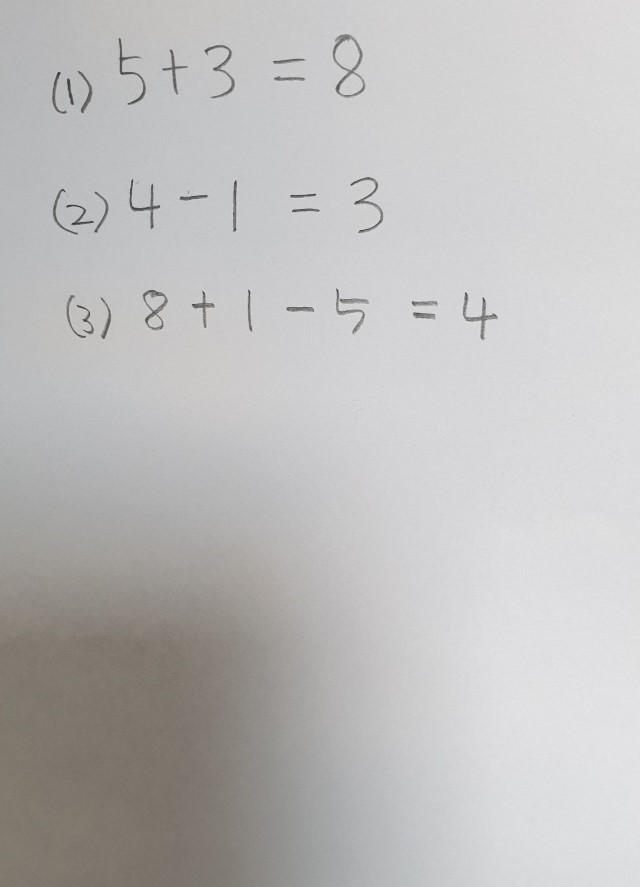 (1) 5+3 = 8
(2) 4-1 = 3
(3) 8+1-5 = 4